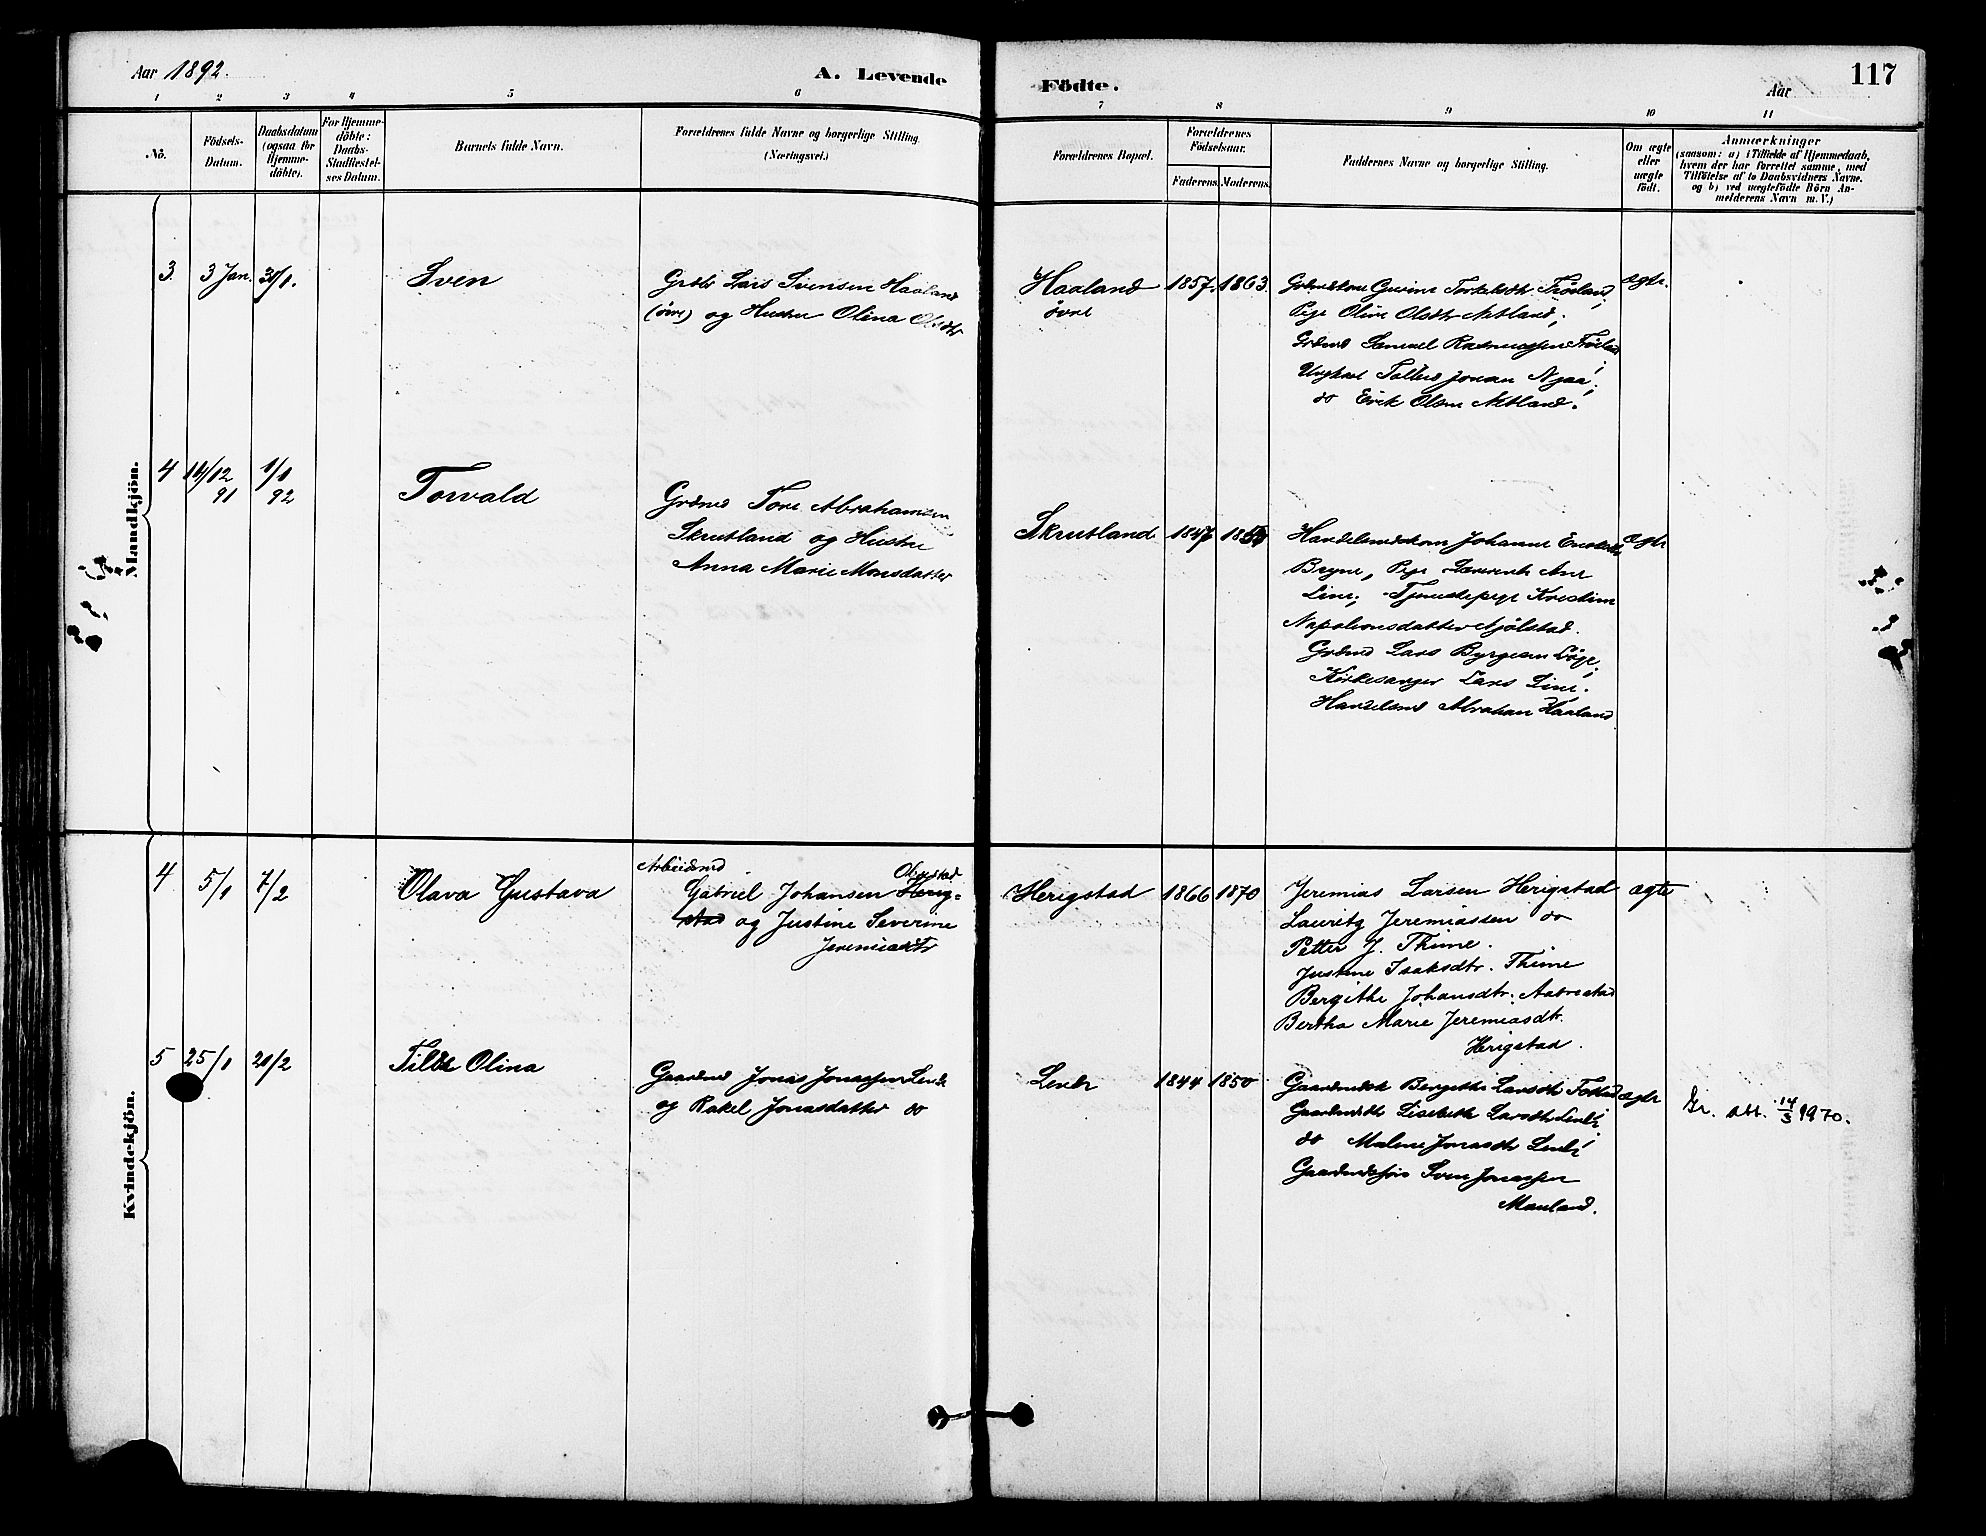 Aar 1892.
A. Levende
Födte.
Aar
117
1 2 3 4 5 6 7 8 9 10 11
No.
Födsels-
Datum.
Daabsdatum
(ogsaa for
Hjemme-
döbte).
For Hjemme-
döbte:
Daabs-
Stadfæstel-
ses Datum.
Barnets fulde Navn.
Forældrenes fulde Navne og borgerlige Stilling
(Næringsvei.)
Forældrenes Bopæl.
Forældrenes
Födselsaar.
Faderens. Moderens.
Faddernes Navne og borgerlige Stilling.
Om ægte
eller
uægte
födt.
Anmærkninger
(saasom: a) i Tilfælde af Hjemmedaab,
hvem der har forrettet samme, med
Tilföielse af to Daabsvidners Navne.
og b) ved uægtefödte Börn An-
melderens Navn m. V.)
Mandkjön.
3. 3 Jan. 31/1.
Sven
Grdbr Lars Svensen Haaland
(övre) og Hustru Olina Olsdtr
Haaland
övre
1857. 1863.
Torkelsdtr. Tröland;
Pige Oline Olsdtr Netland;
Grdmd Samuel Rasmussen Tröland
Ungkarl Jonsen Njaa;
do Erik Olsen Netland.
ægte.
4 14/12 91 1/1 92
Torvald
Grdmd Tore Abrahamsen
Skrutland og Hustru
Anna Marie Monsdatter
Skrutland
1847
Handelsmdskone Johanne
Bryne, Pige Ane
Line; Tjenestepige Kristine
Napoleonsdatter Njölstad.
Grdmd Lars Byrgesen
Kirkesanger Lars Line.
Handelsmd Abraham Haaland
ægte
Kvindekjön.
4 5/1 7/2
Olava Gustava
Arbeidsmd
Gabriel Johansen Herig-
stad og Justine Severine
Jeremiasdtr
Herigstad
1866 1870
Jeremias Larsen Herigstad
Lauritz Jeremiassen do
Petter J. Thime.
Justine Isaksdtr. Thime
Bergithe Johansdtr. Aabrestad
Bertha Marie Jeremiasdtr.
Herigstad.
ægte
5 25/1 21/2
Tilda Olina
Gaardmd Jonas Jonassen Lende
og Rakel Jonasdatter do
Lende
1844 1850
Gaardmdsk Bergitte Larsdtr
Gaardmdsdtr Lisebeth Larsdtr Lende;
do Malene Jonasdtr Lende;
Gaardmdssön Sven Jonassen
Mauland.
ægte
Gr. att. 14/3 1970.